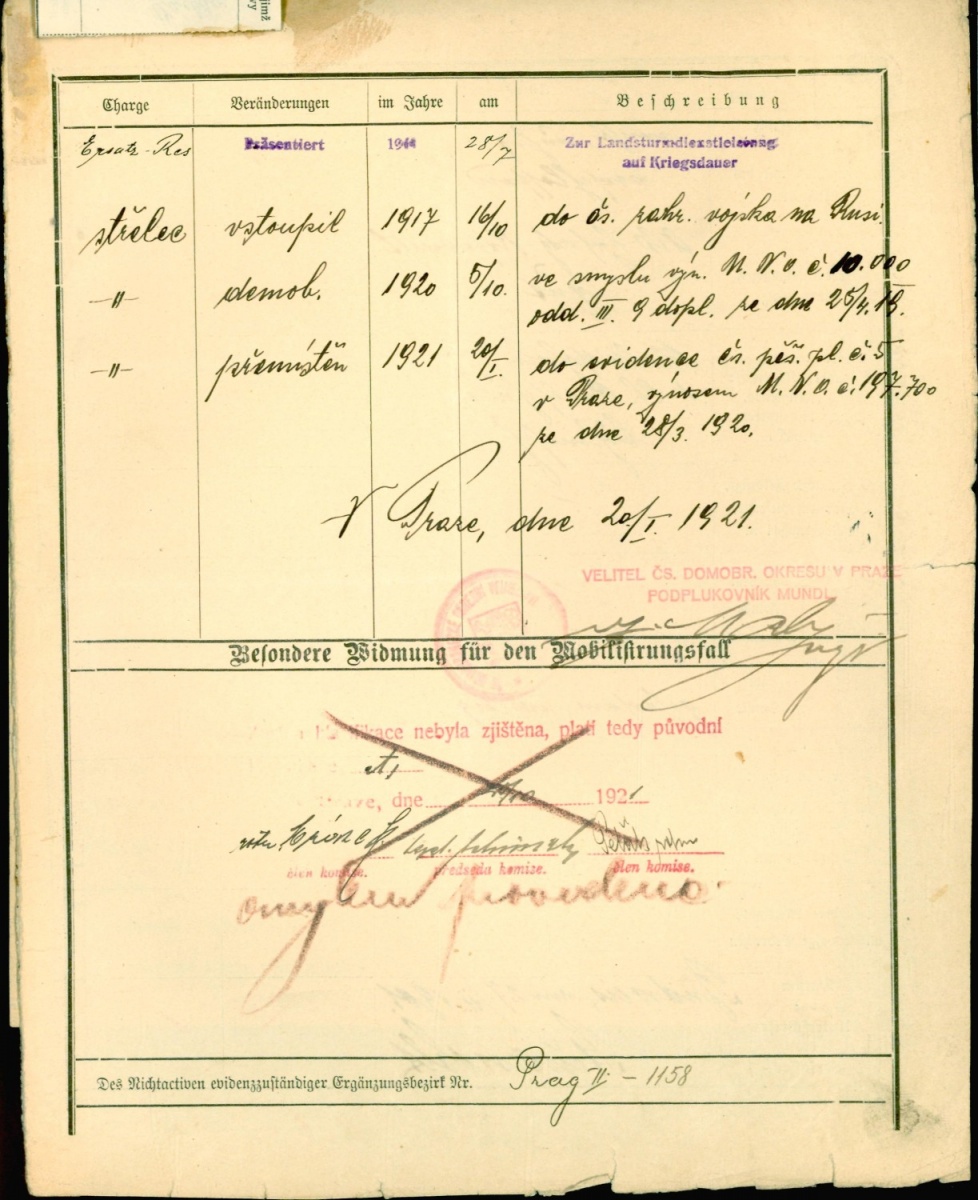 jimž
vy
Charge Veränderungen im Jahre am Beschreibung
Ersatz-Res Präsentiert 1914 28/7 Zur Landsturmdienstleistung
auf Kriegsdauer
střelec vstoupil 1917 16/10 do čs. zahr. vojska na Rusi.
–"– demob. 1920 5/10. ve smyslu výn. M. N. O. č. 10.000
odd. III. 9 dopl. ze dne 25/4. 19.
–"– přemístěn 1921 20/I. do evidence čs. pěš. pl. č. 5
v Praze, výnosem M. N. O. č. 197.700
ze dne 28/3. 1920.
V Praze, dne 20/I. 1921.
VELITEL ČS. DOMOBR. OKRESU V PRAZE
PODPLUKOVNÍK MUNDL
Besondere Widmung für den Mobilisirungsfall
nebyla zjištěna, platí tedy původní
A,
dne 1921
člen komise. předseda komise. člen komise.
omylem provedeno.
Des Nichtactiven evidenzzuständiger Ergänzungsbezirk Nr. Prag II – 1158